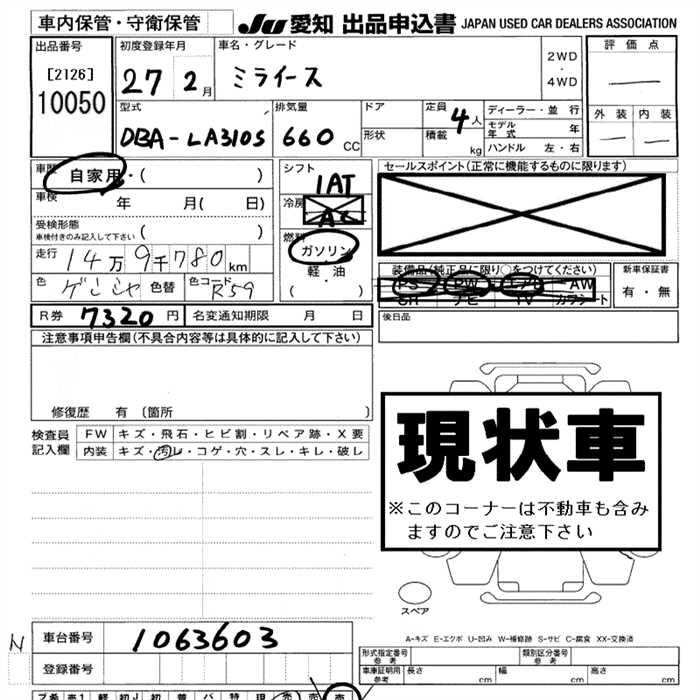 車内保管・守衛保管 JU 愛知 出品申込書 JAPAN USED CAR DEALERS ASSOCIATION
出品番号 初度登録年月 車名・グレード 評価点
[2126] 27 2月 ミライース 2WD・4WD
10050
型式 排気量 ドア 定員 4人 ディーラー・並行 外装 内装
DBA-LA310S 660 CC 形状 積載 kg モデル年式 年
ハンドル 左・右
車歴 自家用・( ) シフト 1AT セールスポイント(正常に機能するものに限ります)
車検 年 月( 日) 冷房 AC
受検形態
車検付きのみ記入して下さい ( ) 燃料 ガソリン
走行 14万9千780km 軽・油 装備品(純正品に限り○をつけてください) 新車保証書
色 ゲンシャ 色替 色コード R59 ( ・ ) PS PW エアB AW 有・無
SR ナビ TV カワシート
R券 7320円 名変通知期限 月 日 後日品
注意事項申告欄(不具合内容等は具体的に記入して下さい)
修復歴 有(箇所 )
検査員記入欄 FW キズ・飛石・ヒビ割・リペア跡・X要
内装 キズ・汚レ・コゲ・穴・スレ・キレ・破レ
現状車
※このコーナーは不動車も含み
ますのでご注意下さい
スペア
A-キズ E-エクボ U-凹み W-補修跡 S-サビ C-腐食 XX-交換済
N 車台番号 1063603
登録番号
形式指定番号 参考 類別区分番号 参考
車庫証明用 参考 長さ cm 幅 cm 高さ cm